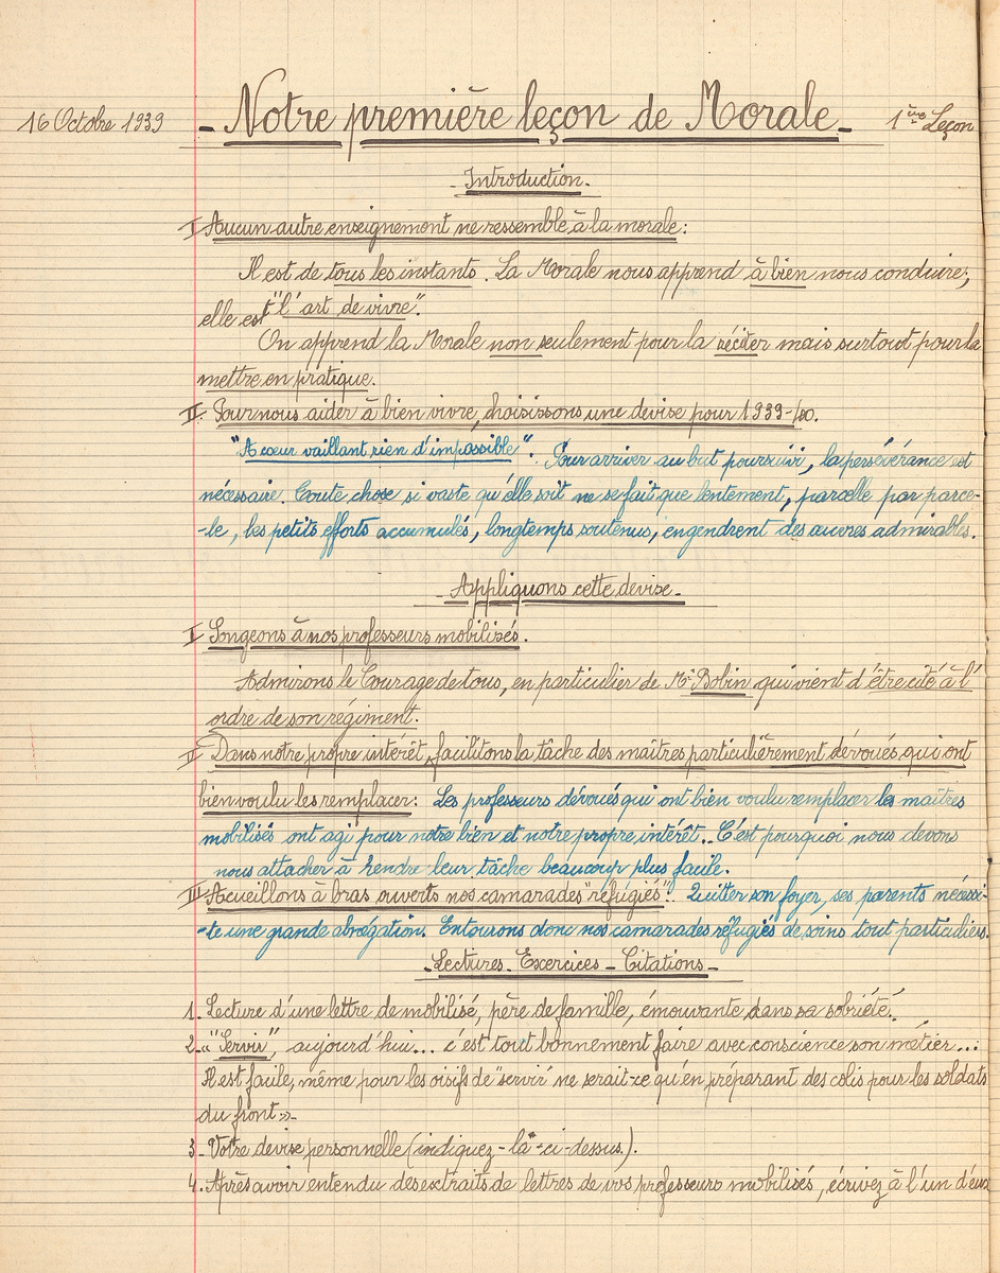 16 Octobre 1939
- Notre première leçon de Morale -
1ère Leçon
- Introduction. -
I Aucun autre enseignement ne ressemble à la morale :
Il est de tous les instants. La Morale nous apprend à bien nous conduire;
elle est "l'art de vivre".
On apprend la Morale non seulement pour la réciter mais surtout pour la
mettre en pratique.
II. Pour nous aider à bien vivre, choisissons une devise pour 1939-40.
"A cœur vaillant rien d'impossible". Pour arriver au but poursuivi, la persévérance est
nécessaire. Toute chose si vaste qu'elle soit ne se fait que lentement, parcelle par parce-
-le, les petits efforts accumulés, longtemps soutenus, engendrent des œuvres admirables.
- Appliquons cette devise. -
I Songeons à nos professeurs mobilisés.
Admirons le Courage de tous, en particulier de Mr Bobin qui vient d'être cité à l'
ordre de son régiment.
II Dans notre propre intérêt, facilitons la tâche des maîtres particulièrement dévoués qui ont
bien voulu les remplacer : Les professeurs dévoués qui ont bien voulu remplacer les maîtres
mobilisés ont agi pour notre bien et notre propre intérêt.. C'est pourquoi nous devons
nous attacher à rendre leur tâche beaucoup plus facile.
III Accueillons à bras ouverts nos camarades "réfugiés". Quitter son foyer, ses parents nécessi-
-te une grande abnégation. Entourons donc nos camarades réfugiés de soins tout particuliers.
- Lectures - Exercices - Citations -
1. Lecture d'une lettre de mobilisé, père de famille, émouvante dans sa sobriété.
2. «"Servir", aujourd'hui... c'est tout bonnement faire avec conscience son métier...
Il est facile, même pour les oisifs de "servir" ne serait-ce qu'en préparant des colis pour les soldats
du front ».
3 - Votre devise personnelle (indiquez-là-ci-dessus.).
4. Après avoir entendu des extraits de lettres de vos professeurs mobilisés, écrivez à l'un d'eux